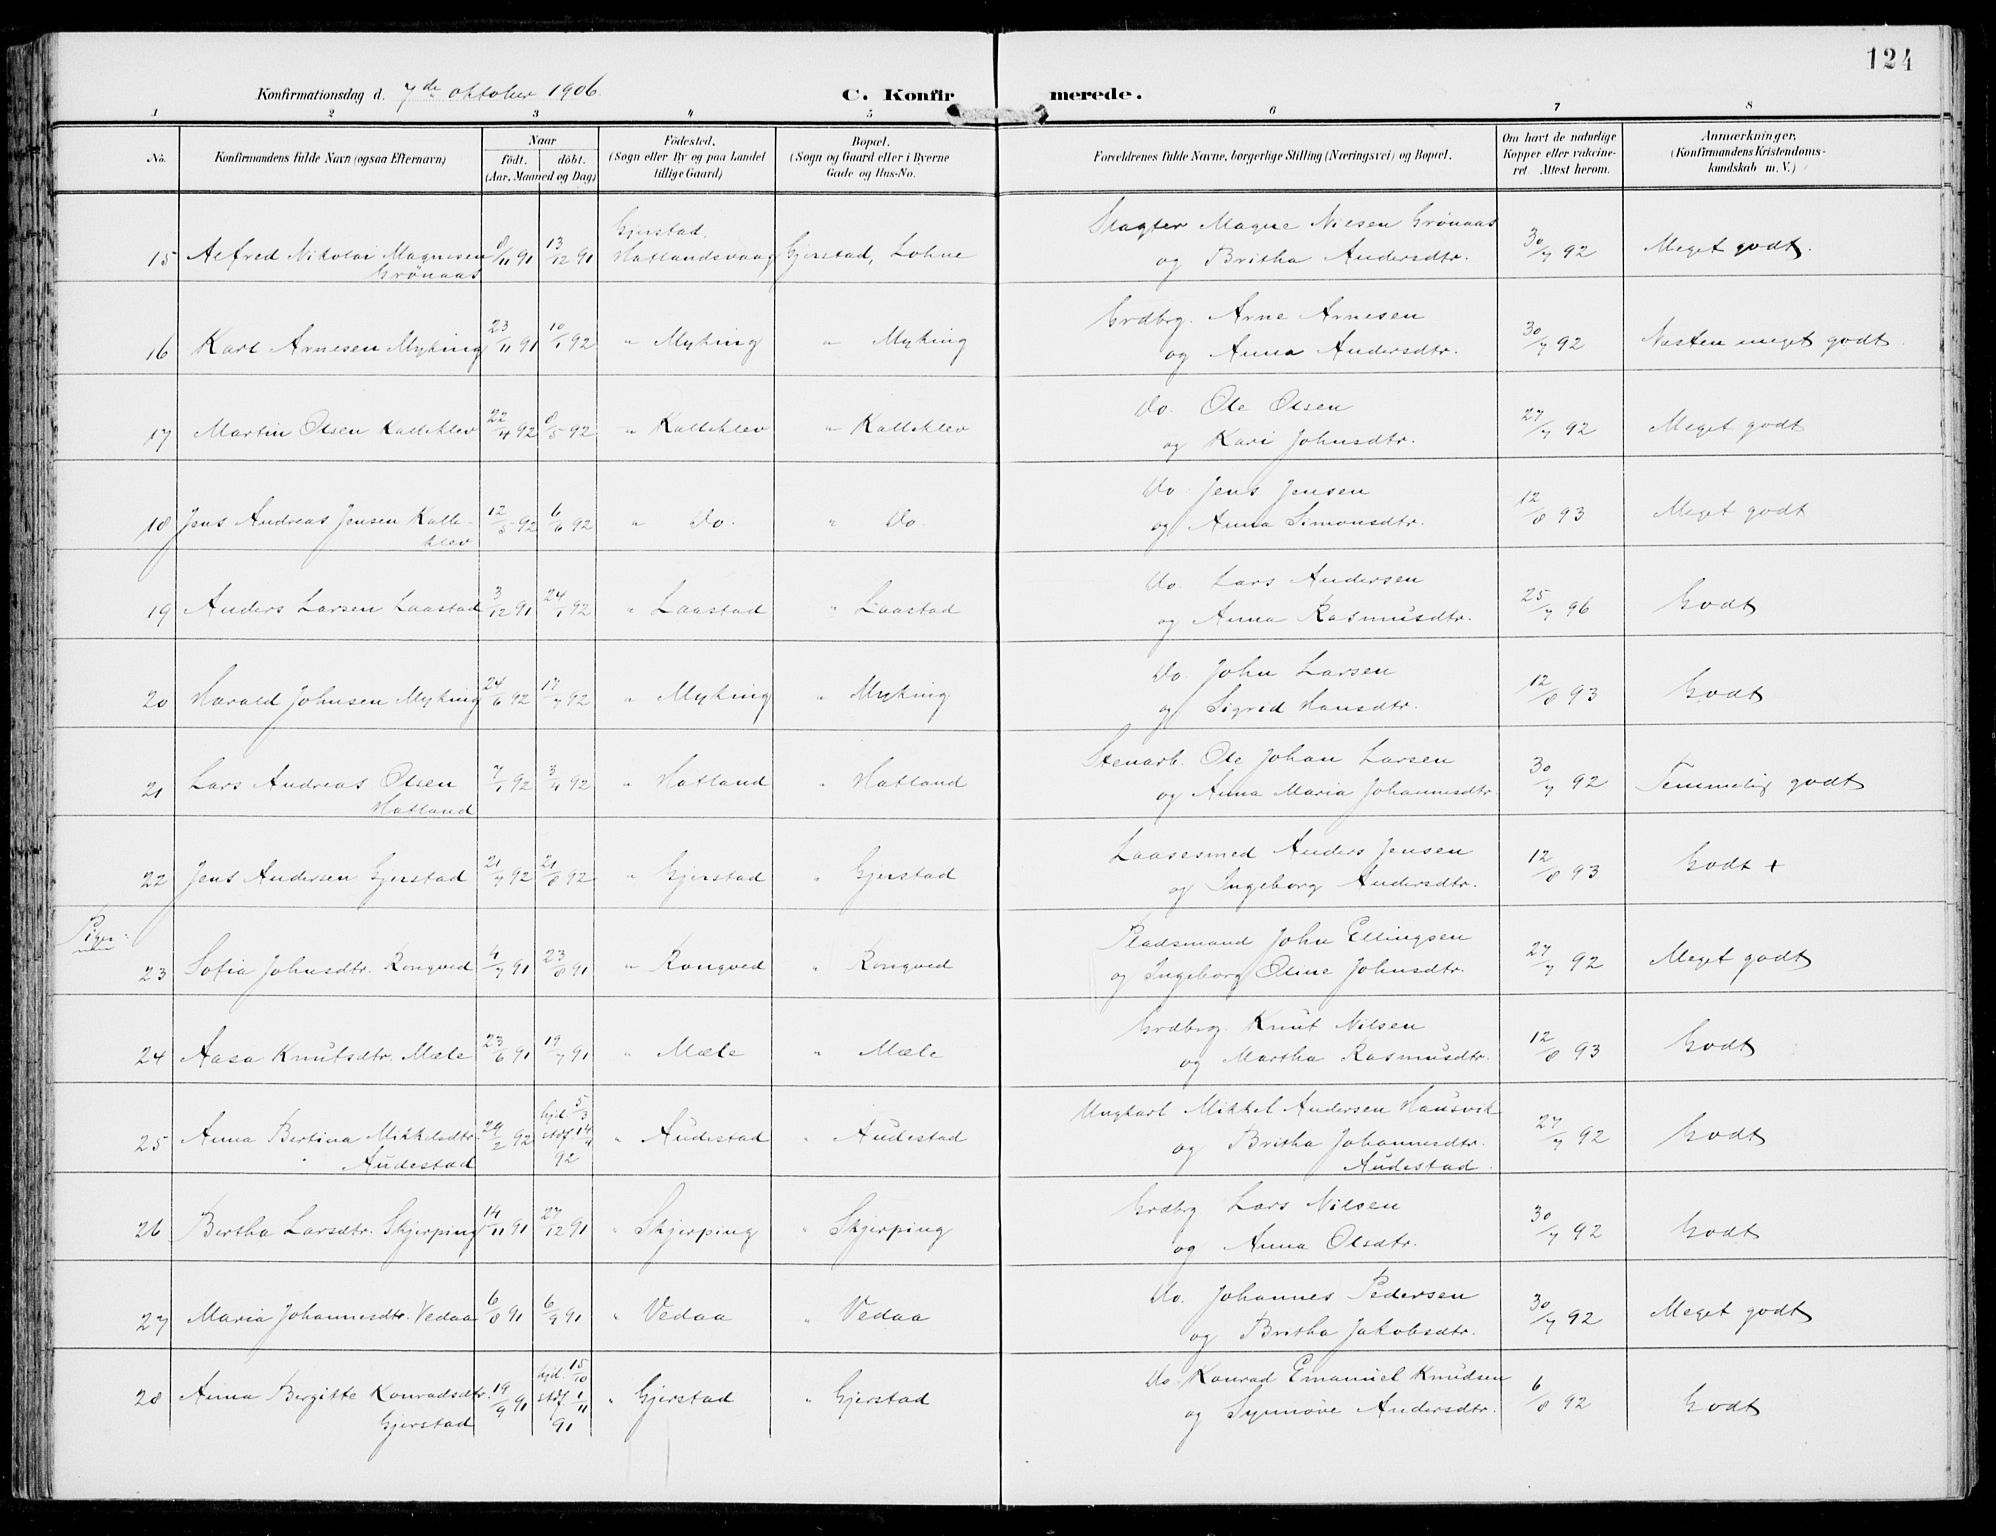 124
Konfirmationsdag d. 7de oktober 1906. C. Konfirmerede.
1 2 3 4 5 6 7 8
No. Konfirmandens fulde Navn (ogsaa Efternavn) Naar født. døbt. (Aar, Maaned og Dag) Fødested. (Sogn eller By og paa Landet tillige Gaard) Bopæl. (Sogn og Gaard eller i Byerne Gade og Hus-No. Forældrenes fulde Navne, borgerlige Stilling (Næringsvei) og Bopæl. Om havt de naturlige Kopper eller vakcineret. Attest herom. Anmærkninger. (Konfirmandens Kristendomskundskab m. V.)
15 Alfred Nikolai Magnesen Grönaas 8/11 91 13/12 91 Gjerstad, Hatlandsvaag Gjerstad, Lohne Slagter Magne Nilsen Grönaas og Britha Andersdtr. 30/7 92 Meget godt.
16 Karl Arnesen Myking 23/11 91 10/1 92 " Myking " Myking Grdbrg. Arne Arnesen og Anna Andersdtr. 30/7 92 Næsten meget godt.
17 Martin Olsen Kalleklev 22/4 92 8/5 92 " Kalleklev " Kalleklev Do. Ole Olsen og Kari Johnsdtr. 27/7 92 Meget godt
18 Jens Andreas Jensen Kalleklev 12/5 92 6/6 92 " Do. " Do. Do. Jens Jensen og Anna Simonsdtr. 12/8 93 Meget godt
19 Anders Larsen Laastad 3/12 91 24/1 92 " Laastad " Laastad Do. Lars Andersen og Anna Rasmusdtr. 25/7 96 Godt
20 Harald Johnsen Myking 24/6 92 17/7 92 " Myking " Myking Do. John Larsen og Sigrid Hansdtr. 12/8 93 Godt
21 Lars Andreas Olsen Hatland 7/1 92 3/4 92 " Hatland " Hatland Stenarb. Ole Johan Larsen og Anna Maria Johannesdtr. 30/7 92 Temmelig godt
22 Jens Andersen Gjerstad 21/7 92 21/8 92 " Gjerstad " Gjerstad Laasesmed Anders Jensen og Ingeborg Andersdtr. 12/8 93 Godt +
Piger
23 Sofia Johnsdtr. Rongved 4/7 91 23/8 91 " Rongved " Rongved Pladsmand John Ellingsen og Ingeborg Oline Johnsdtr. 27/7 92 Meget godt
24 Aasa Knutsdtr. Mæle 23/6 91 19/7 91 " Mæle " Mæle Grdbrg. Knut Nilsen og Martha Rasmusdtr. 12/8 93 Godt
25 Anna Bertina Mikkelsdtr. Audestad 29/2 92 hjd. 5/3 stdf. 14/4 92 " Audestad " Audestad Ungkarl Mikkel Andersen Hausvik og Britha Johannesdtr. Audestad. 27/7 92 Godt
26 Bertha Larsdtr. Skjerping 14/11 91 27/12 91 " Skjerping " Skjerping Grdbrg Lars Nilsen og Anna Olsdtr. 30/7 92 Godt
27 Maria Johannesdtr. Vedaa 6/8 91 6/9 91 " Vedaa " Vedaa Do. Johannes Pedersen og Britha Jakobsdtr. 30/7 92 Meget godt
28 Anna Bergitte Konradsdtr. Gjerstad 19/9 91 hjd. 15/10 stdf. 1/11 91 " Gjerstad " Gjerstad Do. Konrad Emanuel Knudsen og Synnöve Andersdtr. 6/8 92 Godt